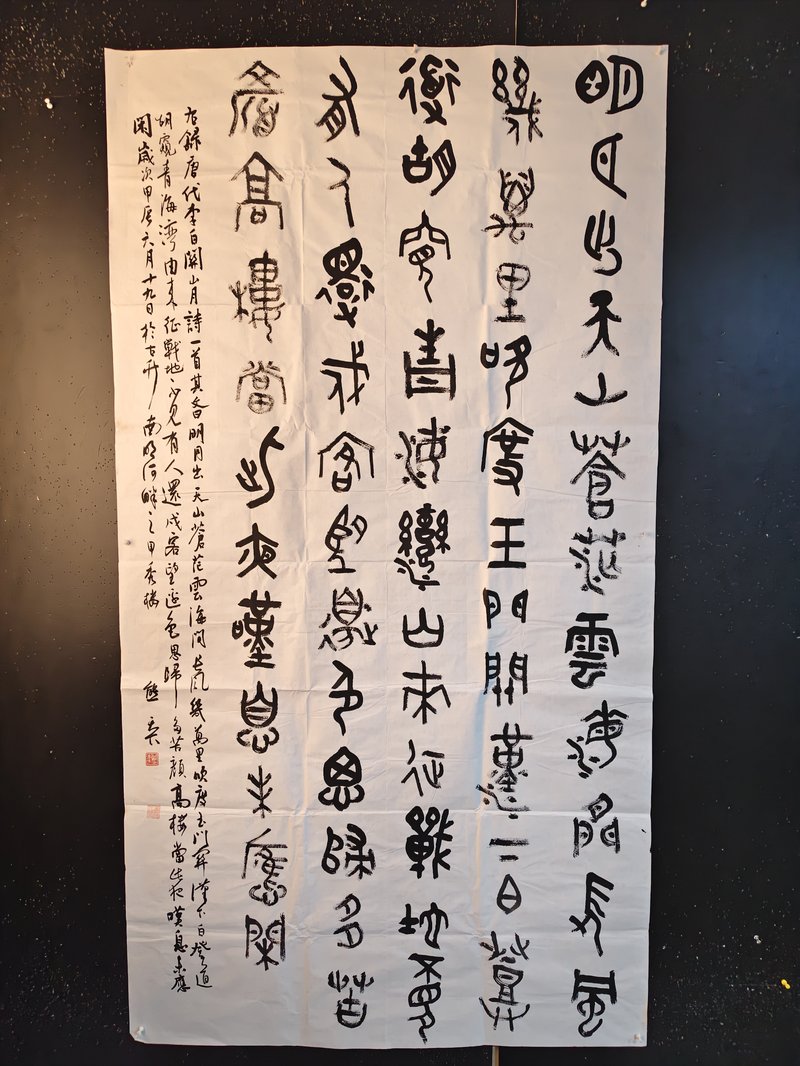 明月出天山蒼茫雲海間長風
幾萬里吹度玉門關漢下白登
道胡窺青海灣由來征戰地不見
有人還戍客望邊色思歸多苦
顏高樓當此夜嘆息未應閑
右錄唐代李白關山月詩一首其文曰明月出天山蒼茫雲海間長風幾萬里吹度玉門關漢下白登道
胡窺青海灣由來征戰地不見有人還戍客望邊色思歸多苦顏高樓當此夜嘆息未應
閑歲次甲辰六月十九日於古南明河畔之甲秀樓 熊